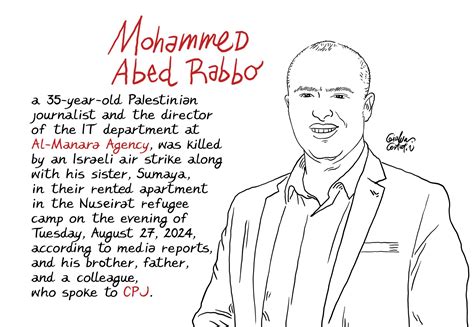 Mohammed
Abed Rabbo
a 35-year-old Palestinian
journalist and the director
of the IT department at
Al-Manara Agency, was killed
by an Israeli air strike along
with his sister, Sumaya,
in their rented apartment
in the Nuseirat refugee
camp on the evening of
Tuesday, August 27, 2024,
according to media reports,
and his brother, father,
and a colleague,
who spoke to CPJ.